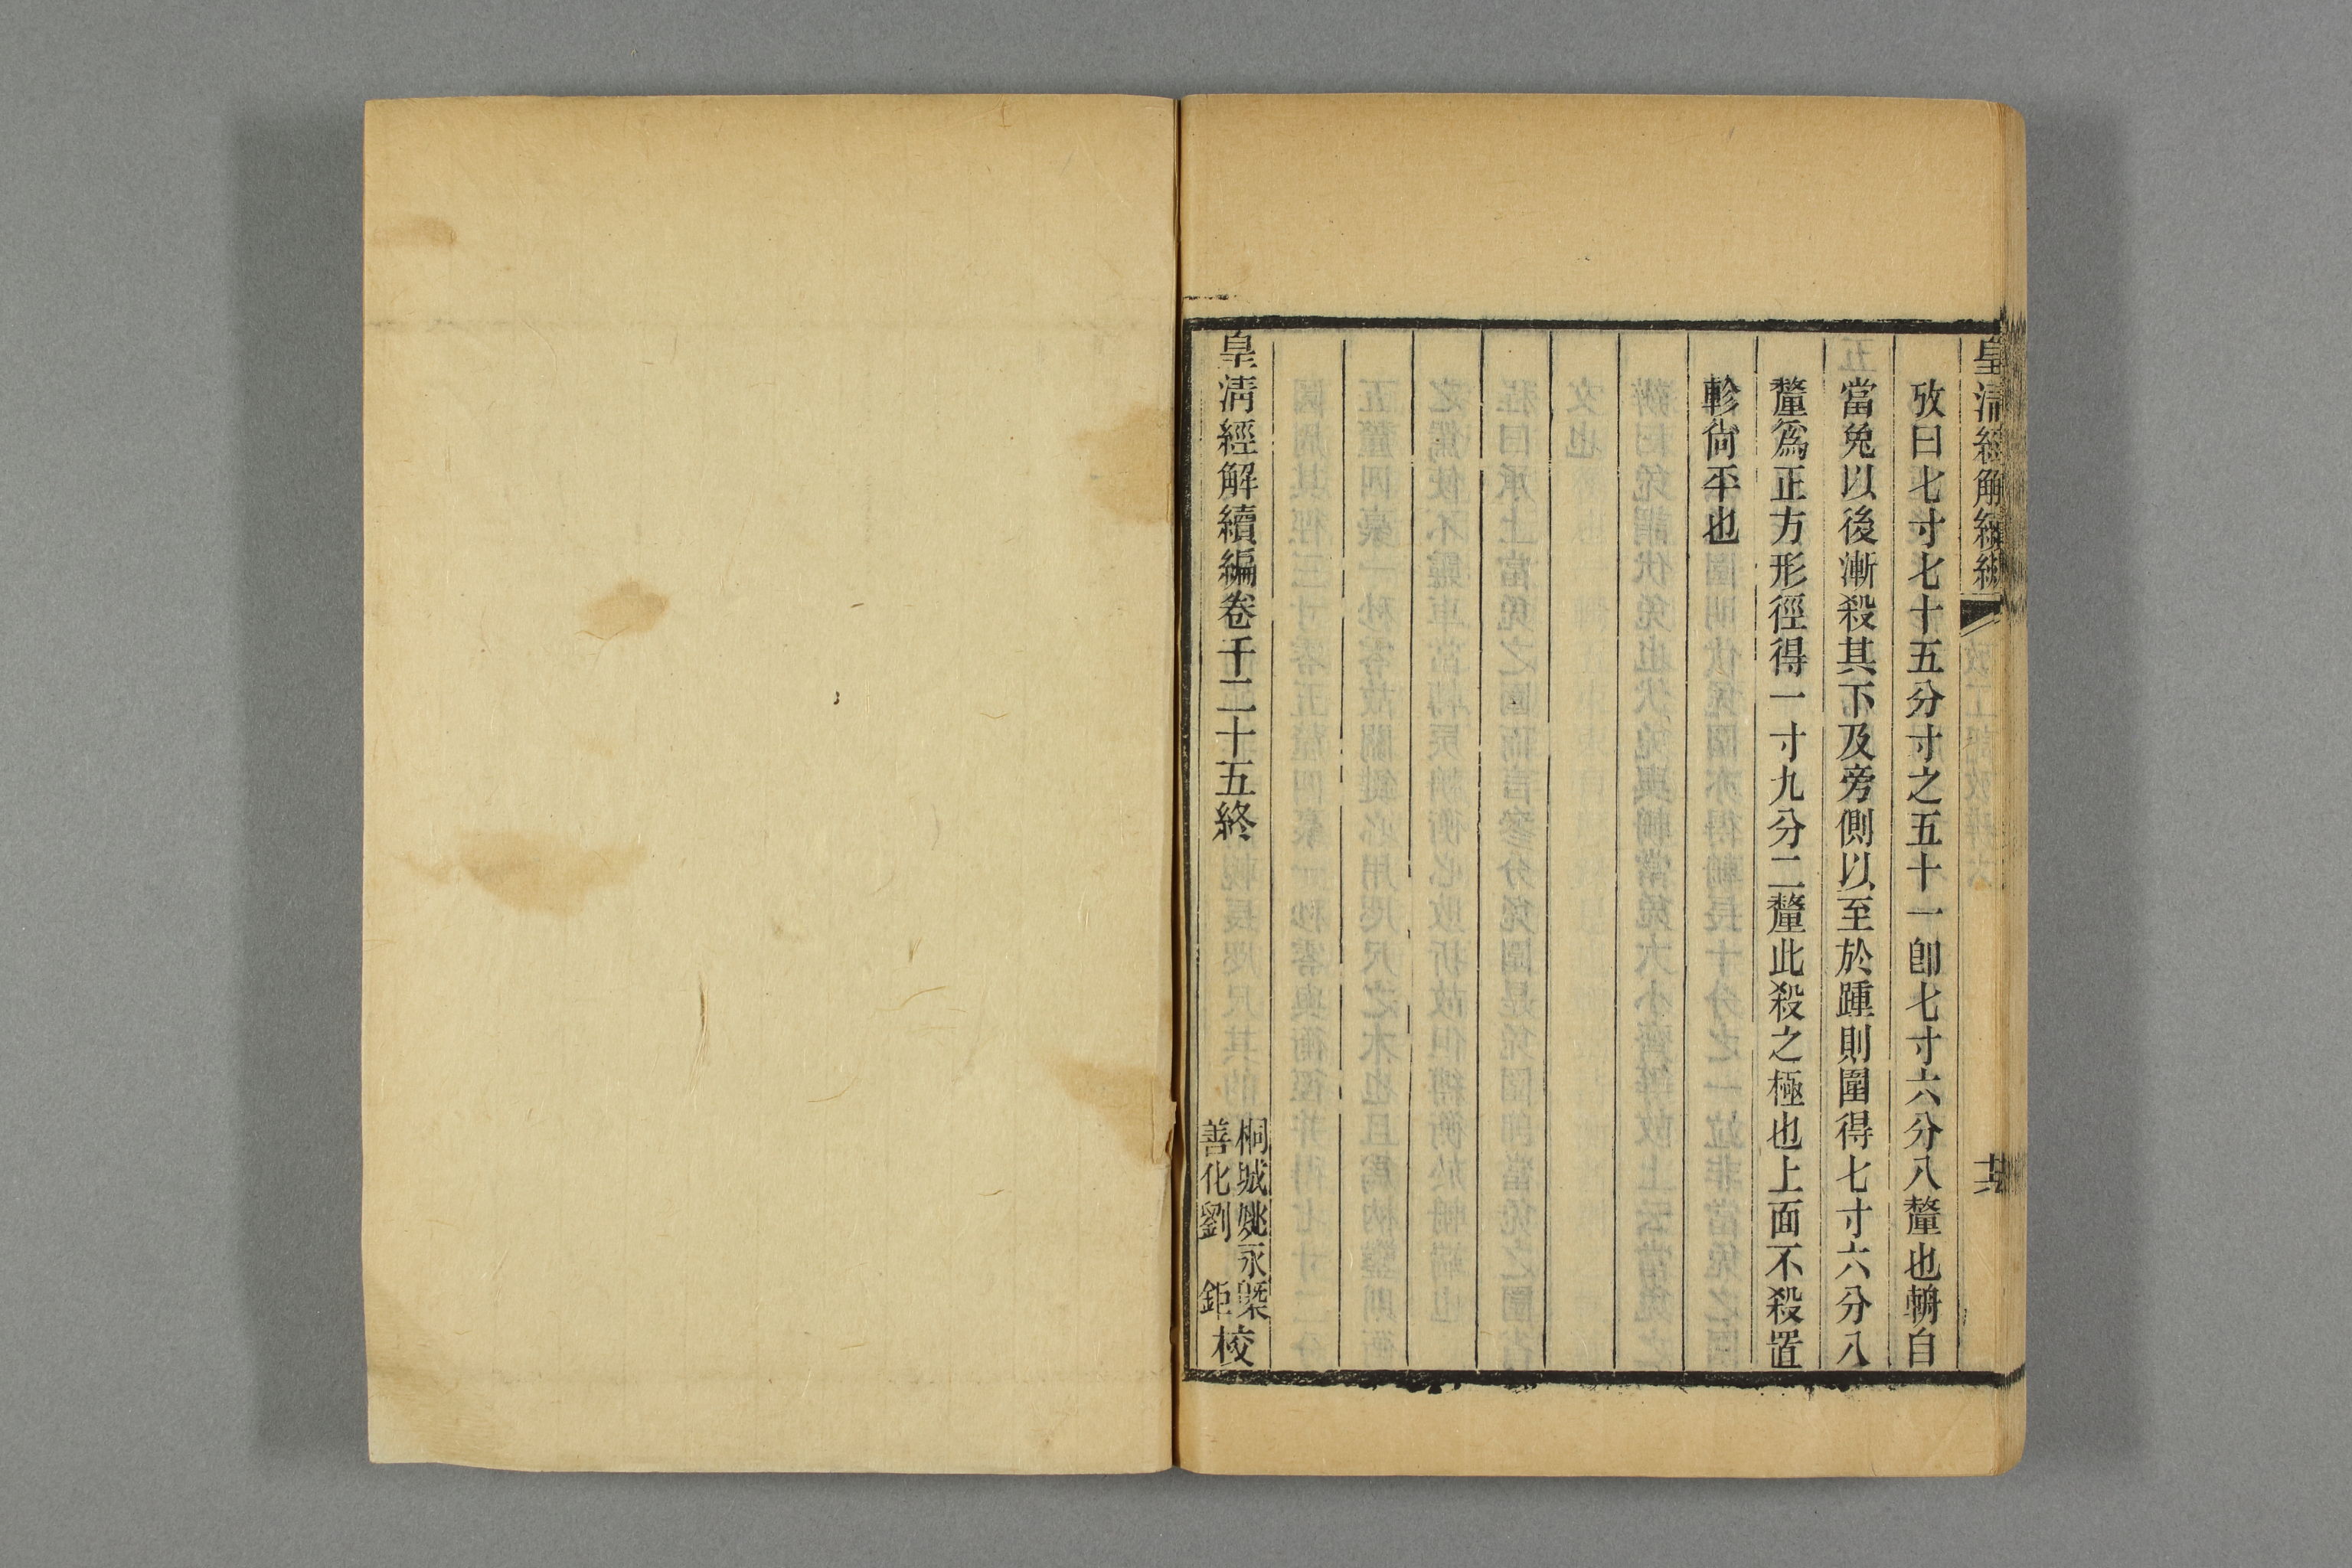 皇清經解續編
攷工記攷辨六
六
攷曰七寸七十五分寸之五十一卽七寸六分八釐也輈自
當兔以後漸殺其下及旁側以至於踵則圍得七寸六分八
釐爲正方形徑得一寸九分二釐此殺之極也上面不殺置
軫尙平也
皇清經解續編卷千二十五終
桐城姚永㮣
善化劉　鉅
校